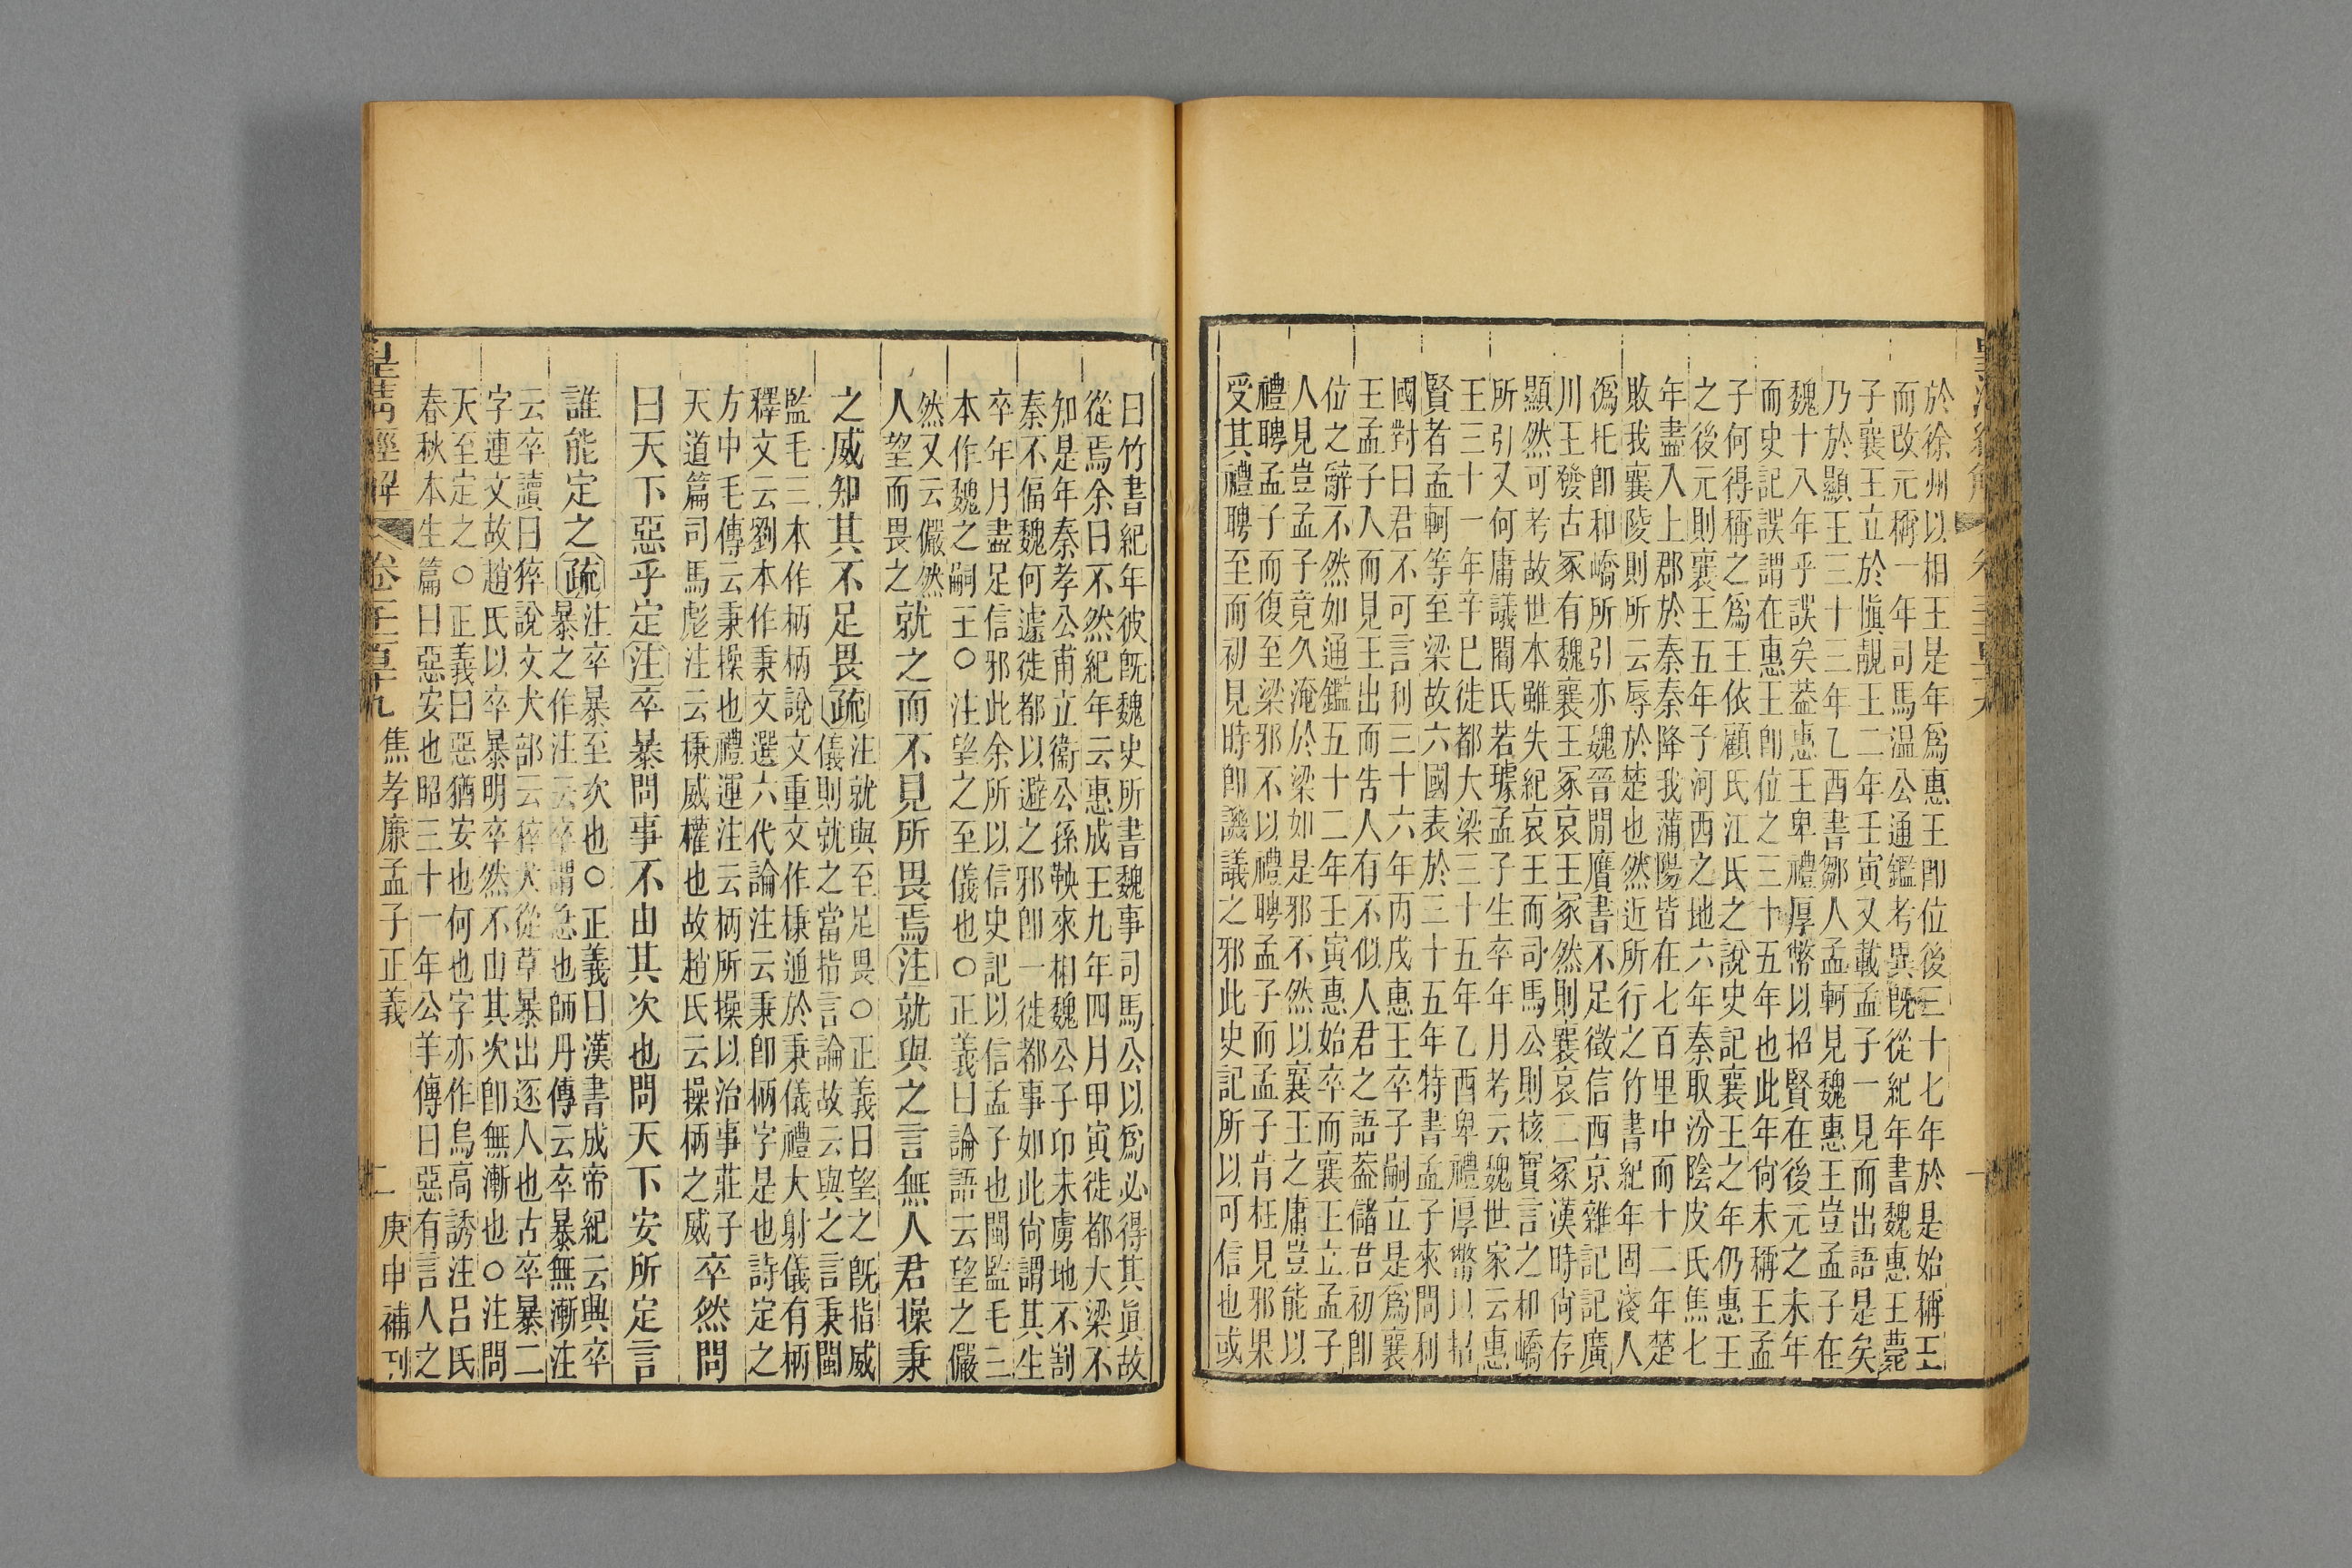 於徐州以相王是年爲惠王卽位後三十七年於是始稱王
而改元稱一年司馬温公通鑑考異旣從紀年書魏惠王薨
子襄王立於愼靚王二年壬寅又載孟子一見而出語是矣
乃於顯王三十三年乙酉書鄒人孟軻見魏惠王豈孟子在
魏十八年乎誤矣葢惠王卑禮厚幣以招賢在後元之末年
而史記誤謂在惠王卽位之三十五年也此年尙未稱王孟
子何得稱之爲王依顧氏江氏之說史記襄王之年仍惠王
之後元則襄王五年子河西之地六年秦取汾陰皮氏焦七
年盡入上郡於秦秦降我蒲陽皆在七百里中而十二年楚
敗我襄陵則所云辱於楚也然近所行之竹書紀年固淺人
僞托卽和嶠所引亦魏晉閒贋書不足徵信西京雜記記廣
川王發古冢有魏襄王冢哀王冢然則襄哀二冢漢時尙存
顯然可考故世本雖失紀哀王而司馬公則核實言之和嶠
所引又何庸議閻氏若璩孟子生卒年月考云魏世家云惠
王三十一年辛巳徙都大梁三十五年乙酉卑禮厚幣以招
賢者孟軻等至梁故六國表於三十五年特書孟子來問利
國對曰君不可言利三十六年丙戌惠王卒子嗣立是爲襄
王孟子入而見王出而吿人有不似人君之語葢儲君初卽
位之辭不然如通鑑五十二年壬寅惠始卒而襄王立孟子
人見豈孟子竟久淹於梁如是邪不然以襄王之庸豈能以
禮聘孟子而復至梁邪不以禮聘孟子而孟子肯枉見邪果
受其禮聘至而初見時卽譏議之邪此史記所以可信也或
曰竹書紀年彼旣魏史所書魏事司馬公以爲必得其眞故
從焉余曰不然紀年云惠成王九年四月甲寅徙都大梁不
知是年秦孝公甫立衞公孫鞅來相魏公子卬未虜地不割
秦不偪魏何遽徙都以避之邪卽一徙都事如此尙謂其生
卒年月盡足信邪此余所以信史記以信孟子也閩監毛三
本作魏之嗣王○注望之至儀也○正義曰論語云望之儼
然又云儼然
人望而畏之就之而不見所畏焉注就與之言無人君操秉
之威知其不足畏疏注就與至足畏○正義曰望之旣指威
儀則就之當指言論故云與之言秉閩
監毛三本作柄柄說文重文作棅通於秉儀禮大射儀有柄
釋文云劉本作秉文選六代論注云秉卽柄字是也詩定之
方中毛傳云秉操也禮運注云柄所操以治事莊子
天道篇司馬彪注云棅威權也故趙氏云操柄之威卒然問
曰天下惡乎定注卒暴問事不由其次也問天下安所定言
誰能定之疏注卒暴至次也○正義曰漢書成帝紀云興卒
暴之作注云卒謂急也師丹傳云卒暴無漸注
云卒讀曰猝說文犬部云猝犬從草暴出逐人也古卒暴二
字連文故趙氏以卒暴明卒然不由其次卽無漸也○注問
天至定之○正義曰惡猶安也何也字亦作烏高誘注呂氏
春秋本生篇曰惡安也昭三十一年公羊傳曰惡有言人之
皇淸經解 卷一千百十九 焦孝廉孟子正義 十一 庚申補刊